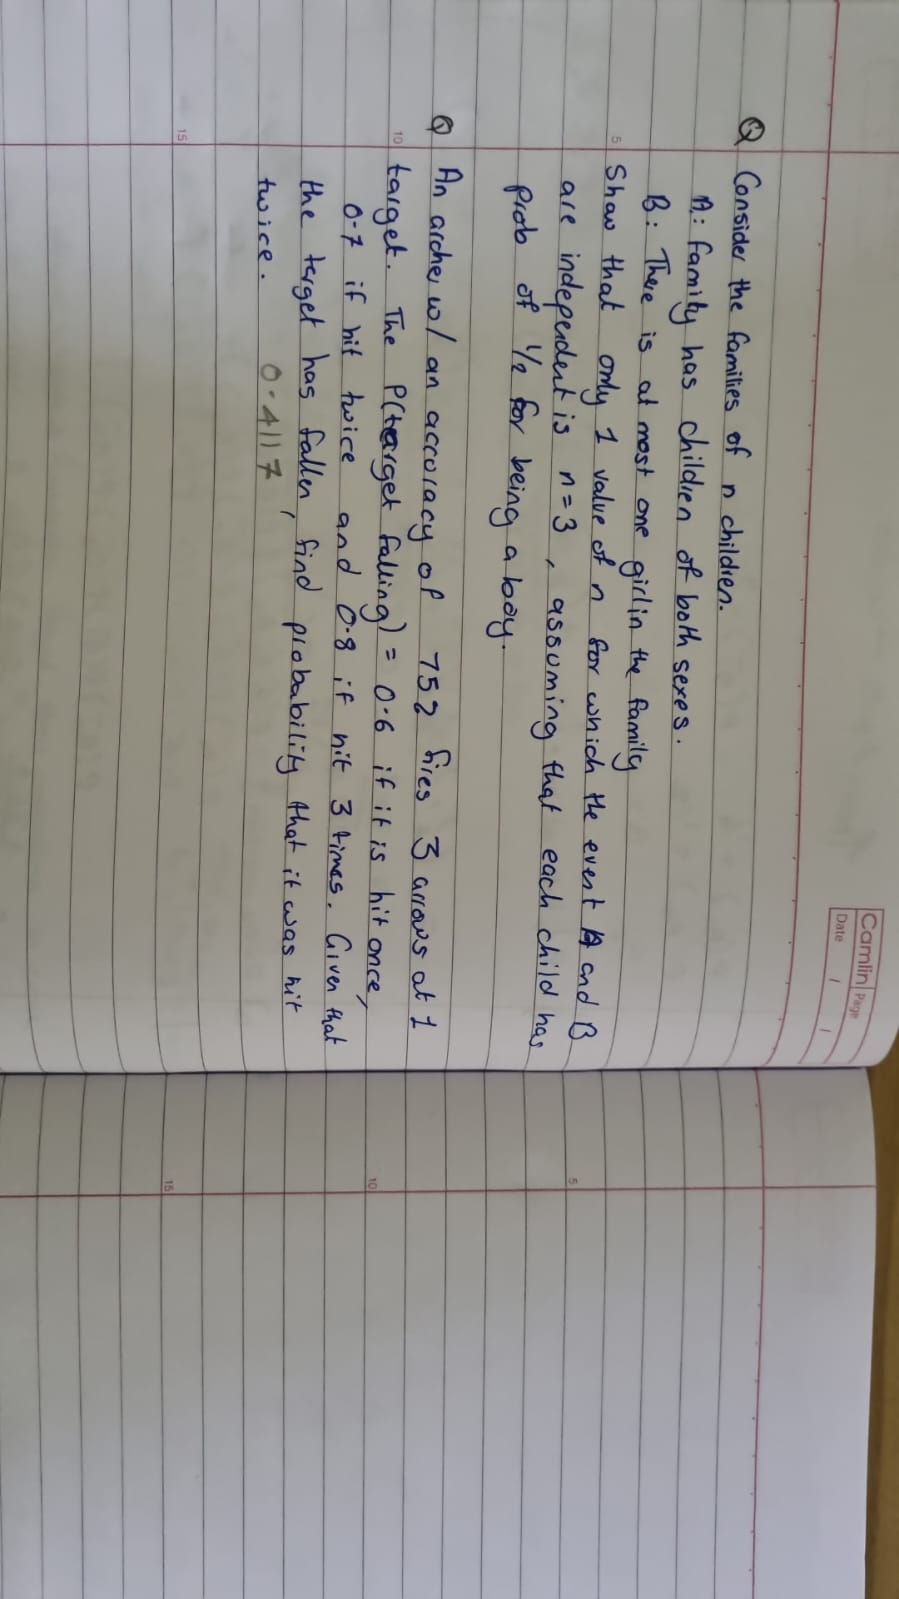 Camlin Page
Date / /
Q Consider the families of n children.
A: family has children of both sexes.
B: There is at most one girl in the family
5 Show that only 1 value of n for which the event A and B
are independent is n=3, assuming that each child has
prob of 1/2 for being a boy.
Q An archer w/ an accuracy of 75% fires 3 arrows at 1
10 target. The P(target falling) = 0.6 if it is hit once,
0.7 if hit twice and 0.8 if hit 3 times. Given that
the target has fallen, find probability that it was hit
twice. 0.4117
15
5
10
15